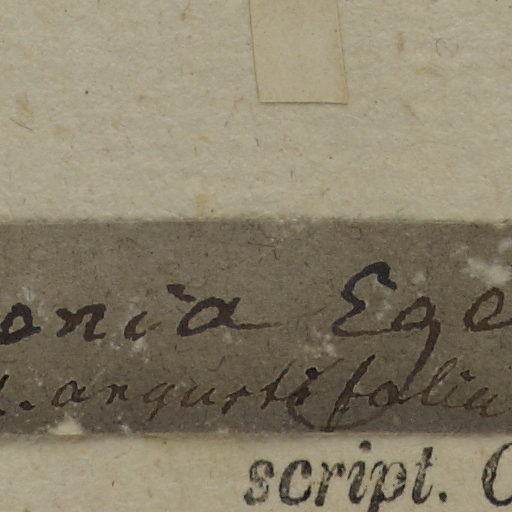 onia Ege
. angustifolia
script.